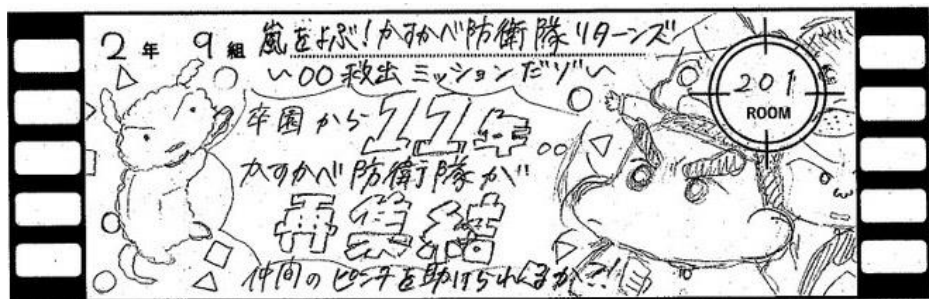 2年 9組 嵐をよぶ!かすかべ防衛隊リターンズ!
〜〇〇救出ミッションだゾ〜
201
ROOM
卒園から11年
かすかべ防衛隊が
再集結
仲間のピンチを助けられるか?!